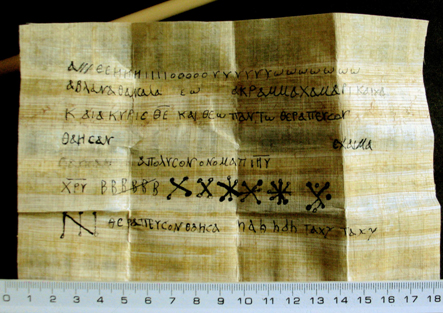 α εε ηηη ιιιι οοοοο υυυυυυ ωωωωωωω
αβλαναθαναλα εω ακραμμαχαμαρι
κυριε θε και θεω παντω θεραπευσον
θαησαν
απολυσον ονομα
ββββββ
θεραπευσον θαησα ηδη ηδη ταχυ ταχυ
0 1 2 3 4 5 6 7 8 9 10 11 12 13 14 15 16 17 18